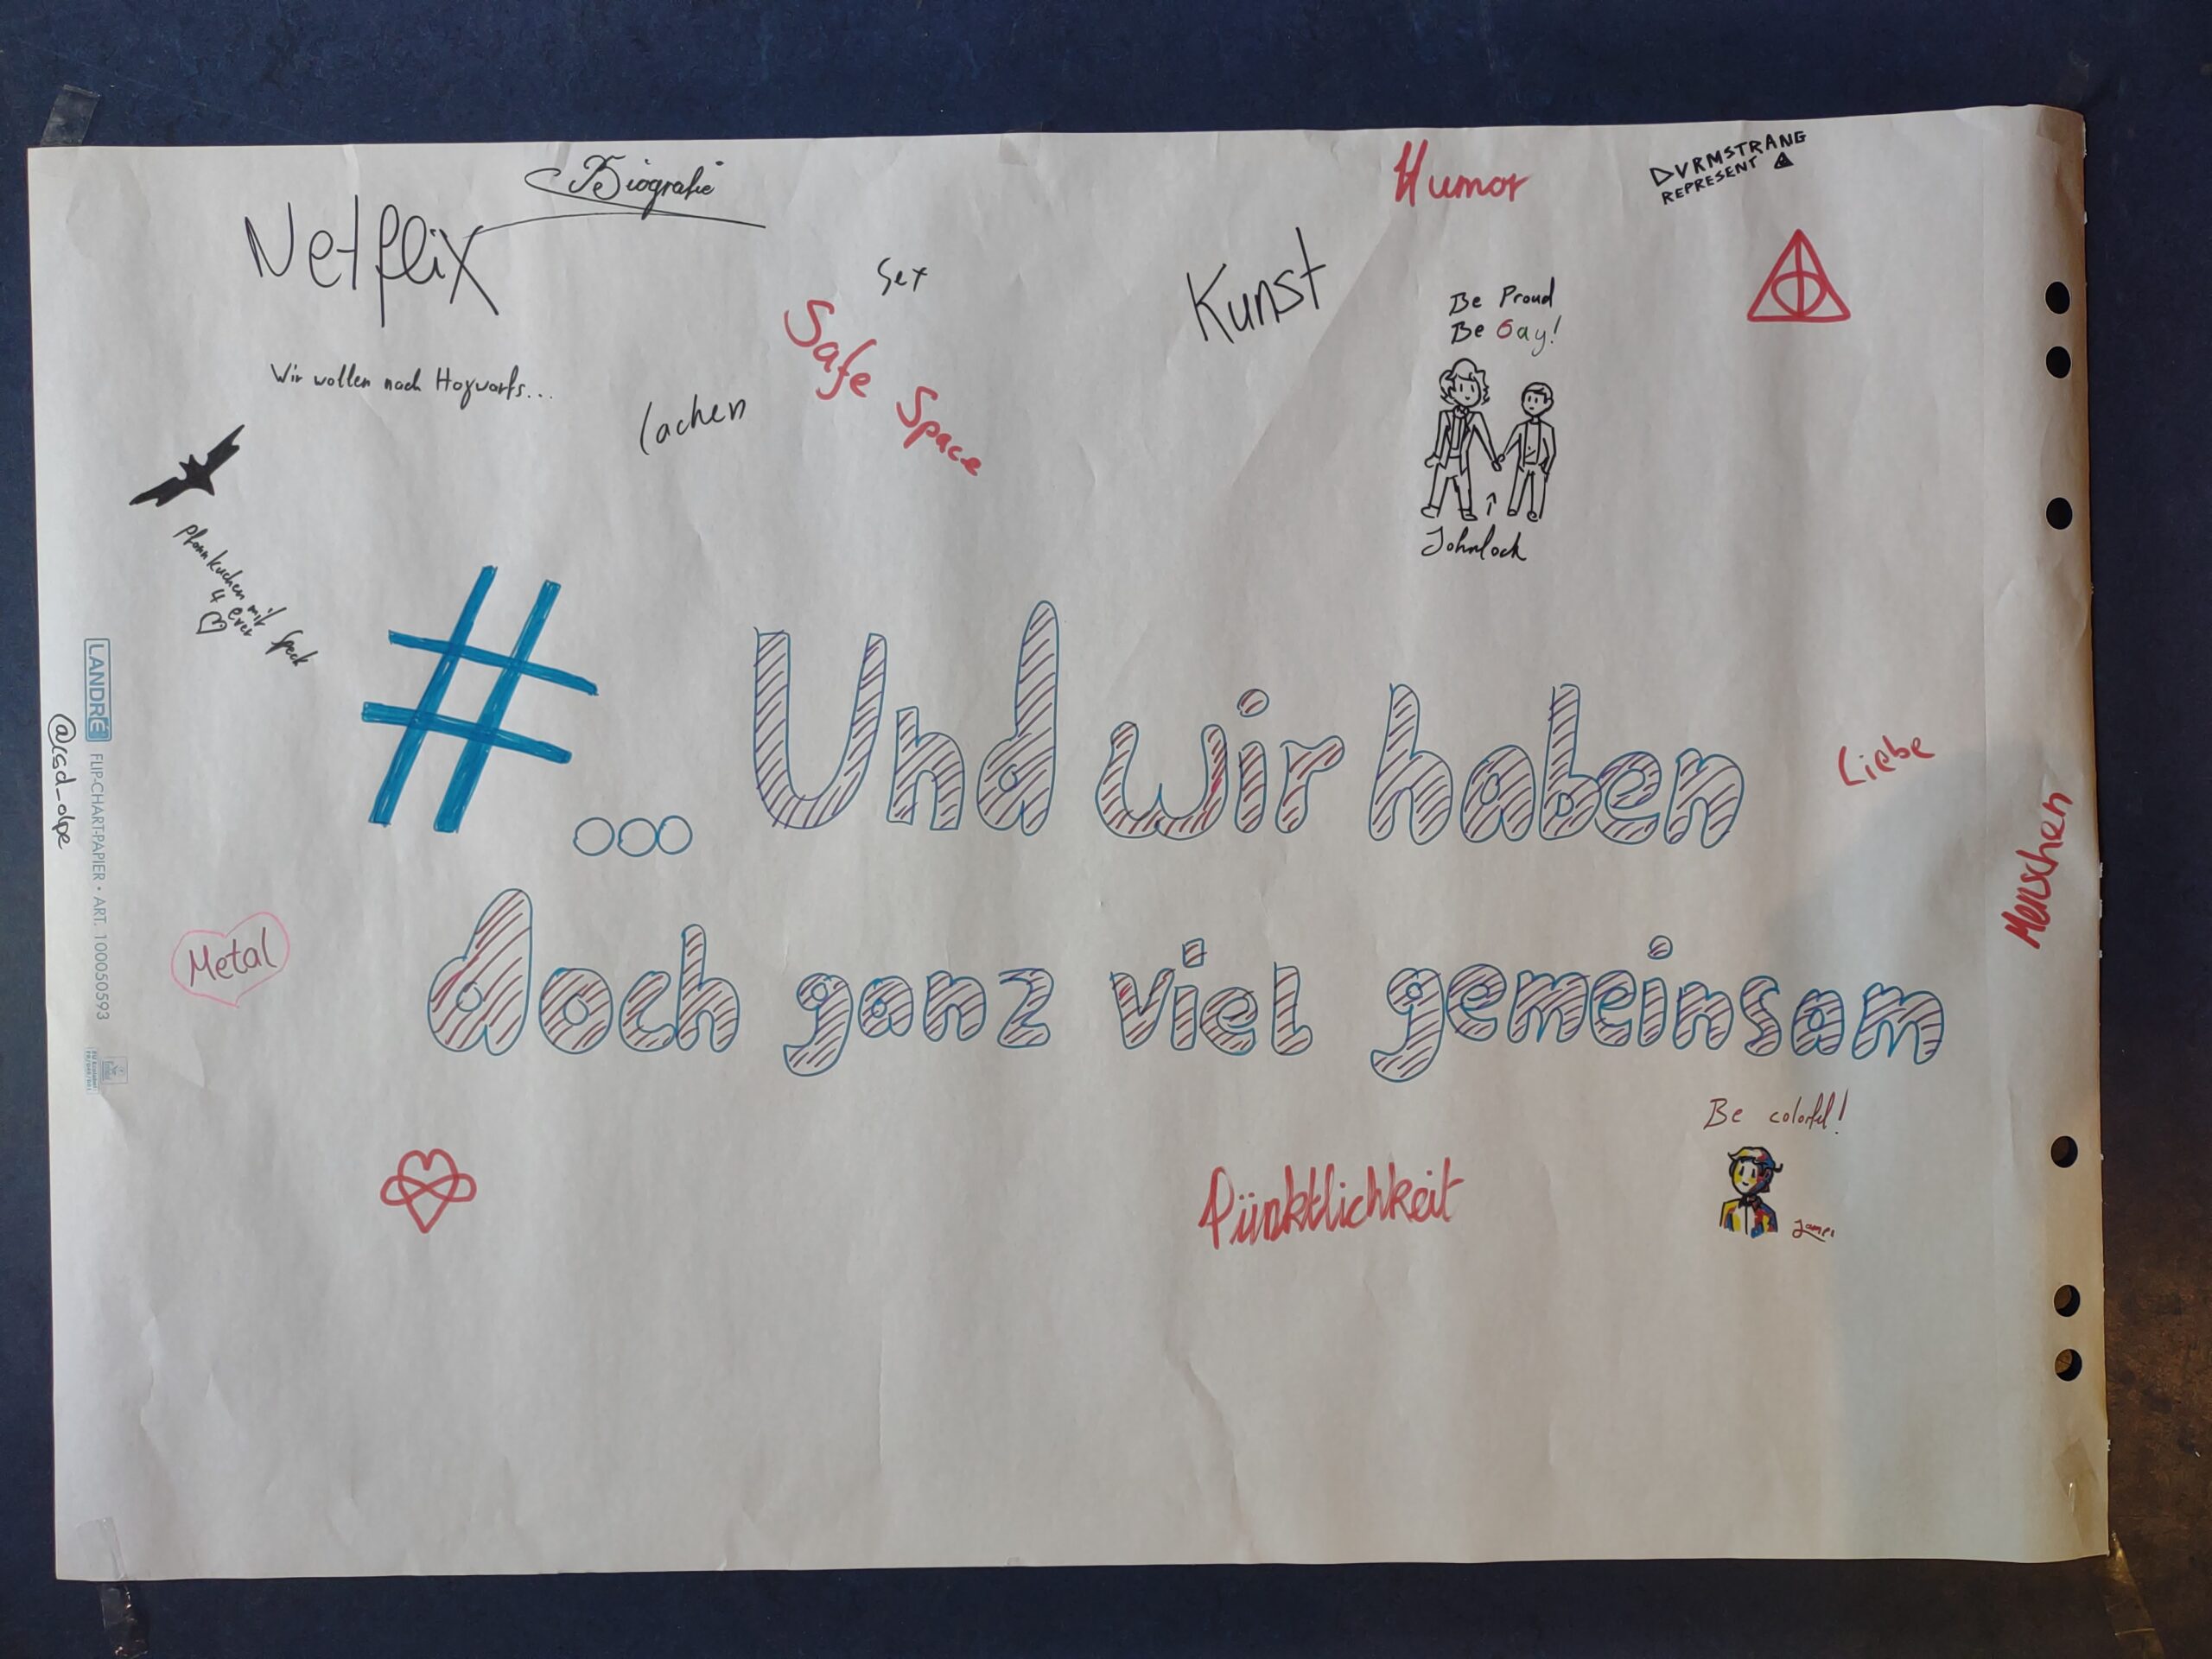 Biografie
Netflix
Humor
DVRMSTRANG
REPRESENT
Sex
Kunst
Safe Space
Be Proud
Be Gay!
Wir wollen nach Hogwarts...
lachen
Johnlock
Pfannkuchen mit Speck
4 ever
#... Und wir haben
doch ganz viel gemeinsam
Liebe
Menschen
LANDRÉ FLIP-CHART-PAPIER • ART. 100050593
@csd_olpe
Metal
Be colorful!
Pünktlichkeit